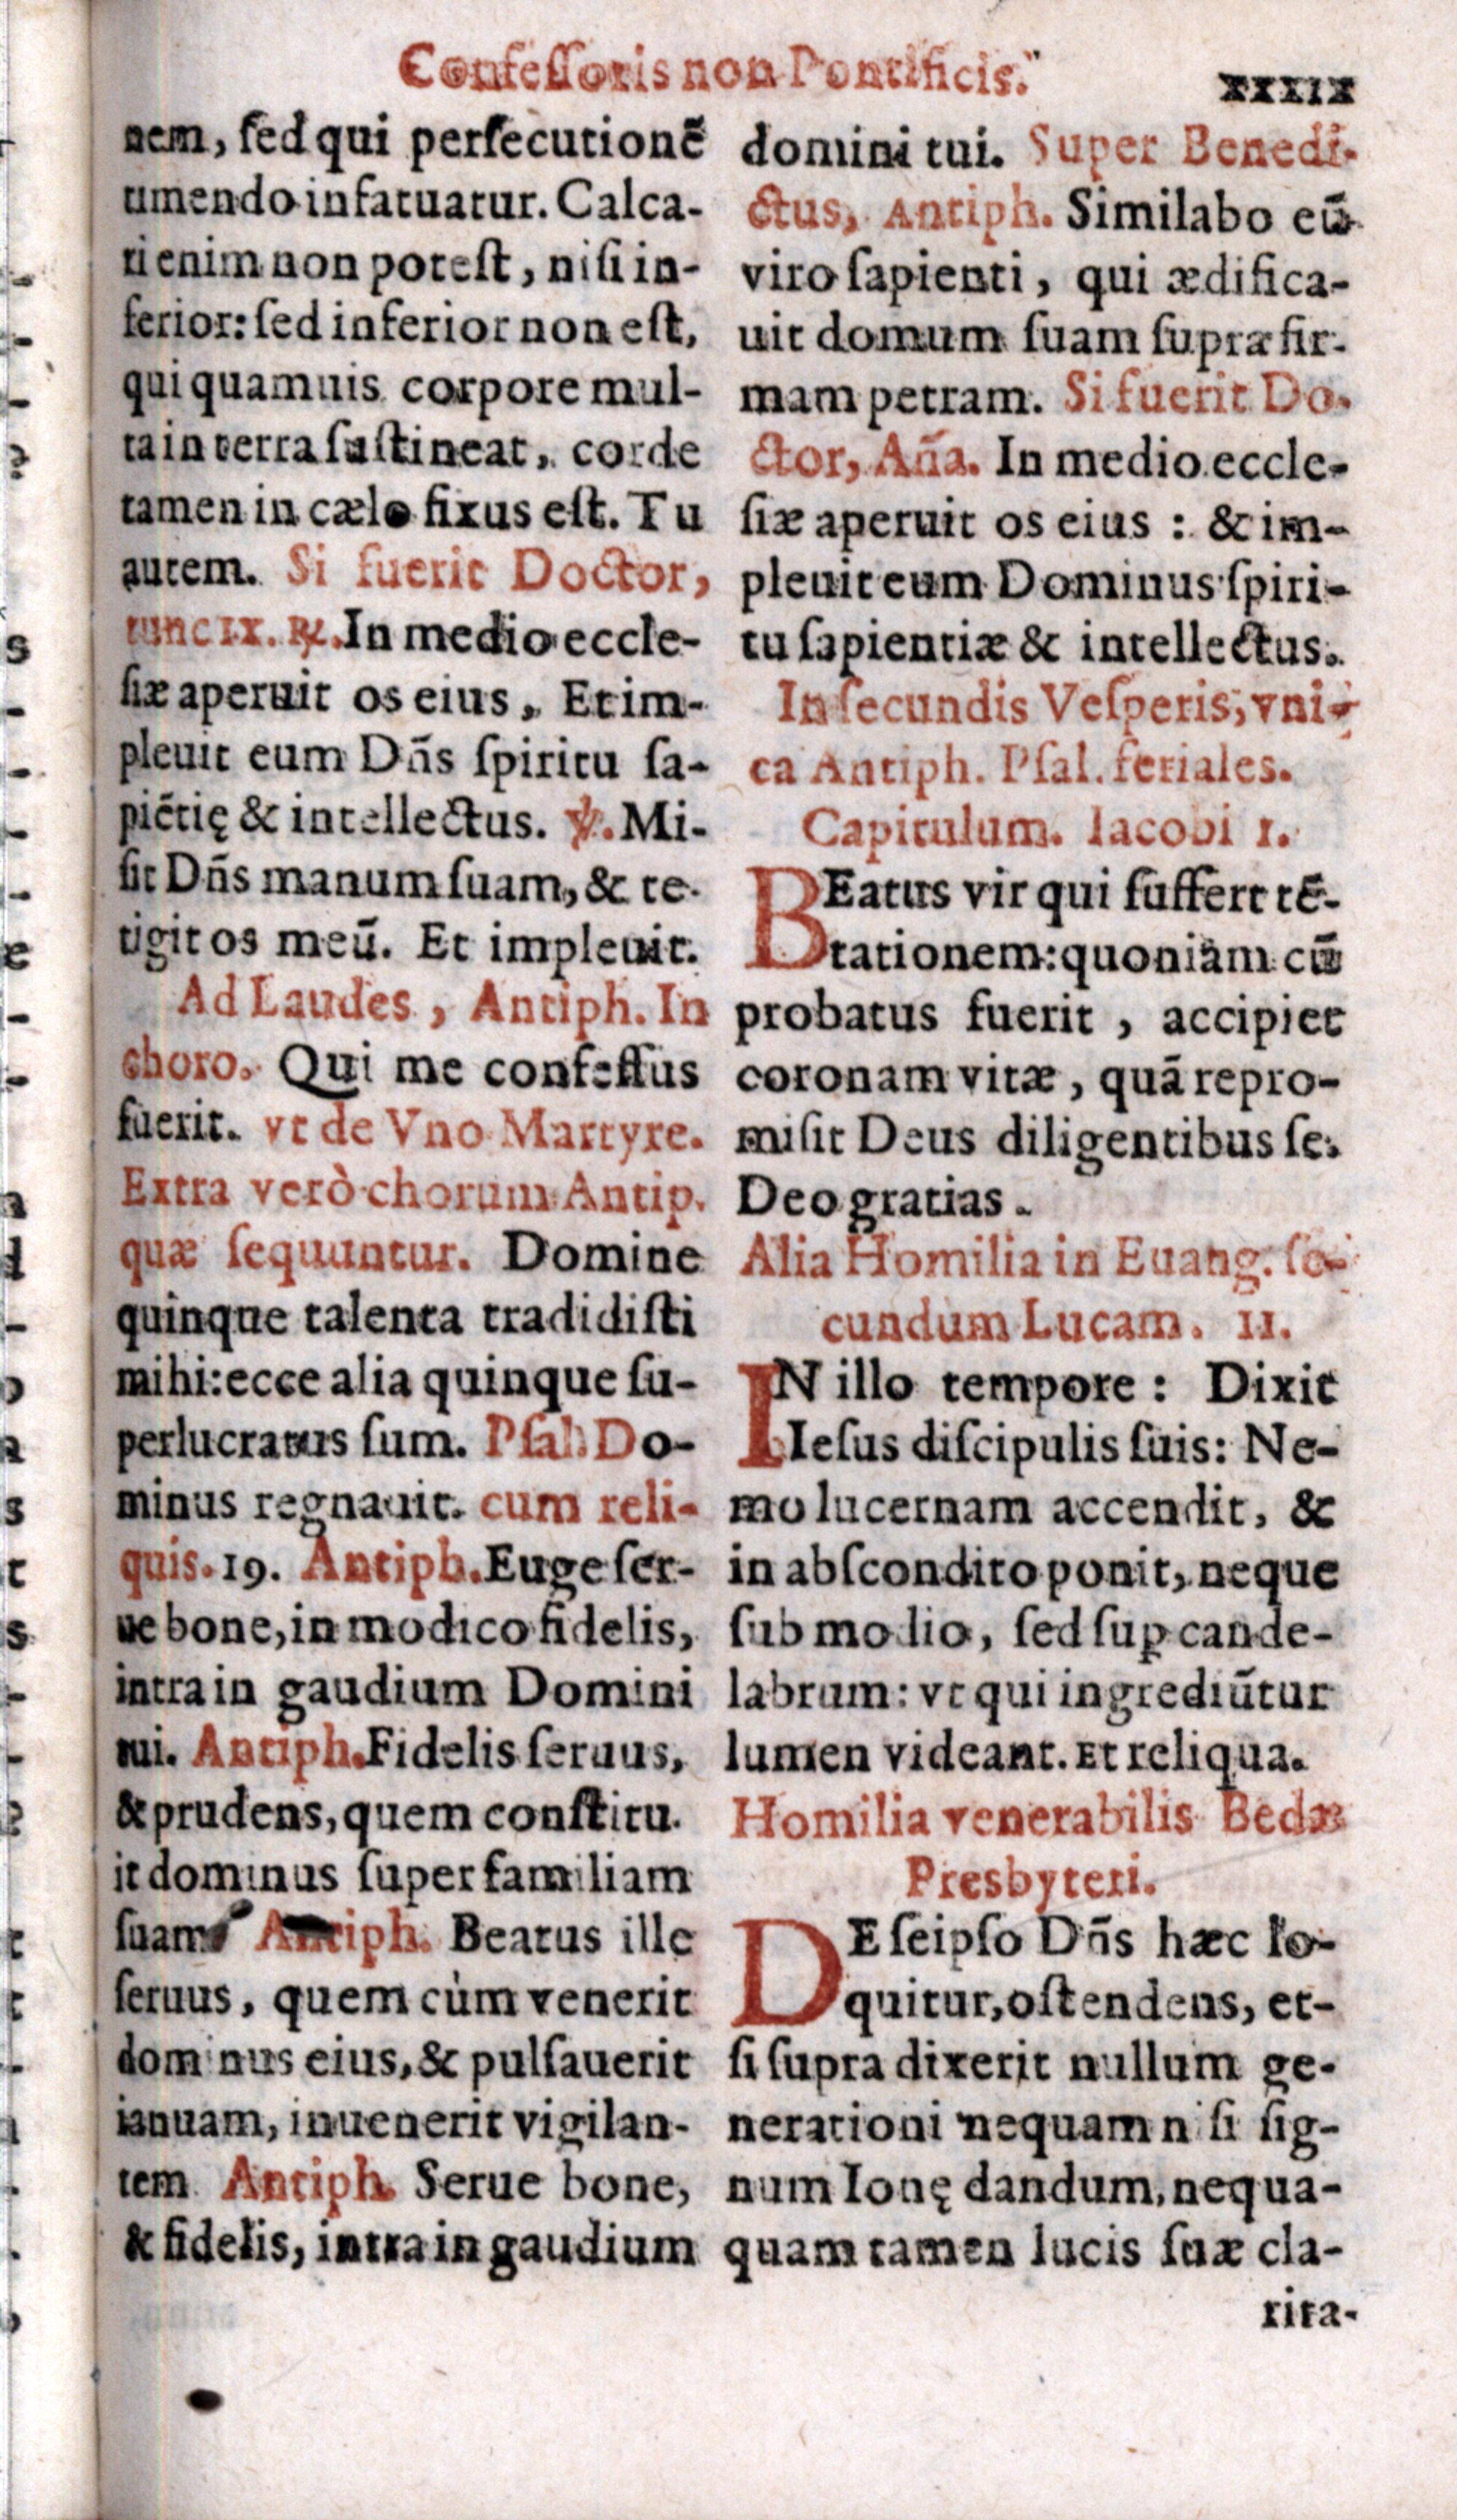 Confeſſoris non Pontificis.
xxxix
nem, ſed qui perſecutionē
timendo infatuatur. Calca-
ti enim non poteſt, niſi in-
ferior: ſed inferior non eſt,
qui quamuis corpore mul-
ta in terra ſuſtineat, corde
tamen in cælo fixus eſt. Tu
autem. Si fuerit Doctor,
tunc ix. ℟. In medio eccle-
ſiæ aperuit os eius, Et im-
pleuit eum Dñs ſpiritu ſa-
piētię & intellectus. ℣. Mi-
ſit Dñs manum ſuam, & te-
tigit os meū. Et impleuit.
Ad Laudes, Antiph. In
choro. Qui me confeſſus
fuerit. vt de Vno Martyre.
Extra verò chorum Antip.
quæ ſequuntur. Domine
quinque talenta tradidiſti
mihi: ecce alia quinque ſu-
perlucratus ſum. Pſal. Do-
minus regnauit. cum reli-
quis. 19. Antiph. Euge ſer-
ue bone, in modico fidelis,
intra in gaudium Domini
tui. Antiph. Fidelis ſeruus,
& prudens, quem conſtitu-
it dominus ſuper familiam
ſuam. Antiph. Beatus ille
ſeruus, quem cùm venerit
dominus eius, & pulſauerit
ianuam, inuenerit vigilan-
tem Antiph. Serue bone,
& fidelis, intra in gaudium
domini tui. Super Benedi-
ctus, Antiph. Similabo eū
viro ſapienti, qui ædifica-
uit domum ſuam ſupra fir-
mam petram. Si fuerit Do-
ctor, Aña. In medio eccle-
ſiæ aperuit os eius: & im-
pleuit eum Dominus ſpiri-
tu ſapientiæ & intellectus.
In ſecundis Veſperis, vni-
ca Antiph. Pſal. feriales.
Capitulum. Iacobi 1.
BEatus vir qui ſuffert tē-
tationem: quoniam cū
probatus fuerit, accipiet
coronam vitæ, quā repro-
miſit Deus diligentibus ſe.
Deo gratias.
Alia Homilia in Euang. ſe-
cundum Lucam. 11.
IN illo tempore: Dixit
Ieſus diſcipulis ſuis: Ne-
mo lucernam accendit, &
in abſcondito ponit, neque
ſub modio, ſed ſuꝑ cande-
labrum: vt qui ingrediūtur
lumen videant. Et reliqua.
Homilia venerabilis Bedæ
Presbyteri.
DE ſeipſo Dñs hæc lo-
quitur, oſtendens, et-
ſi ſupra dixerit nullum ge-
nerationi nequam niſi ſig-
num Ionę dandum, nequa-
quam tamen lucis ſuæ cla-
rita-